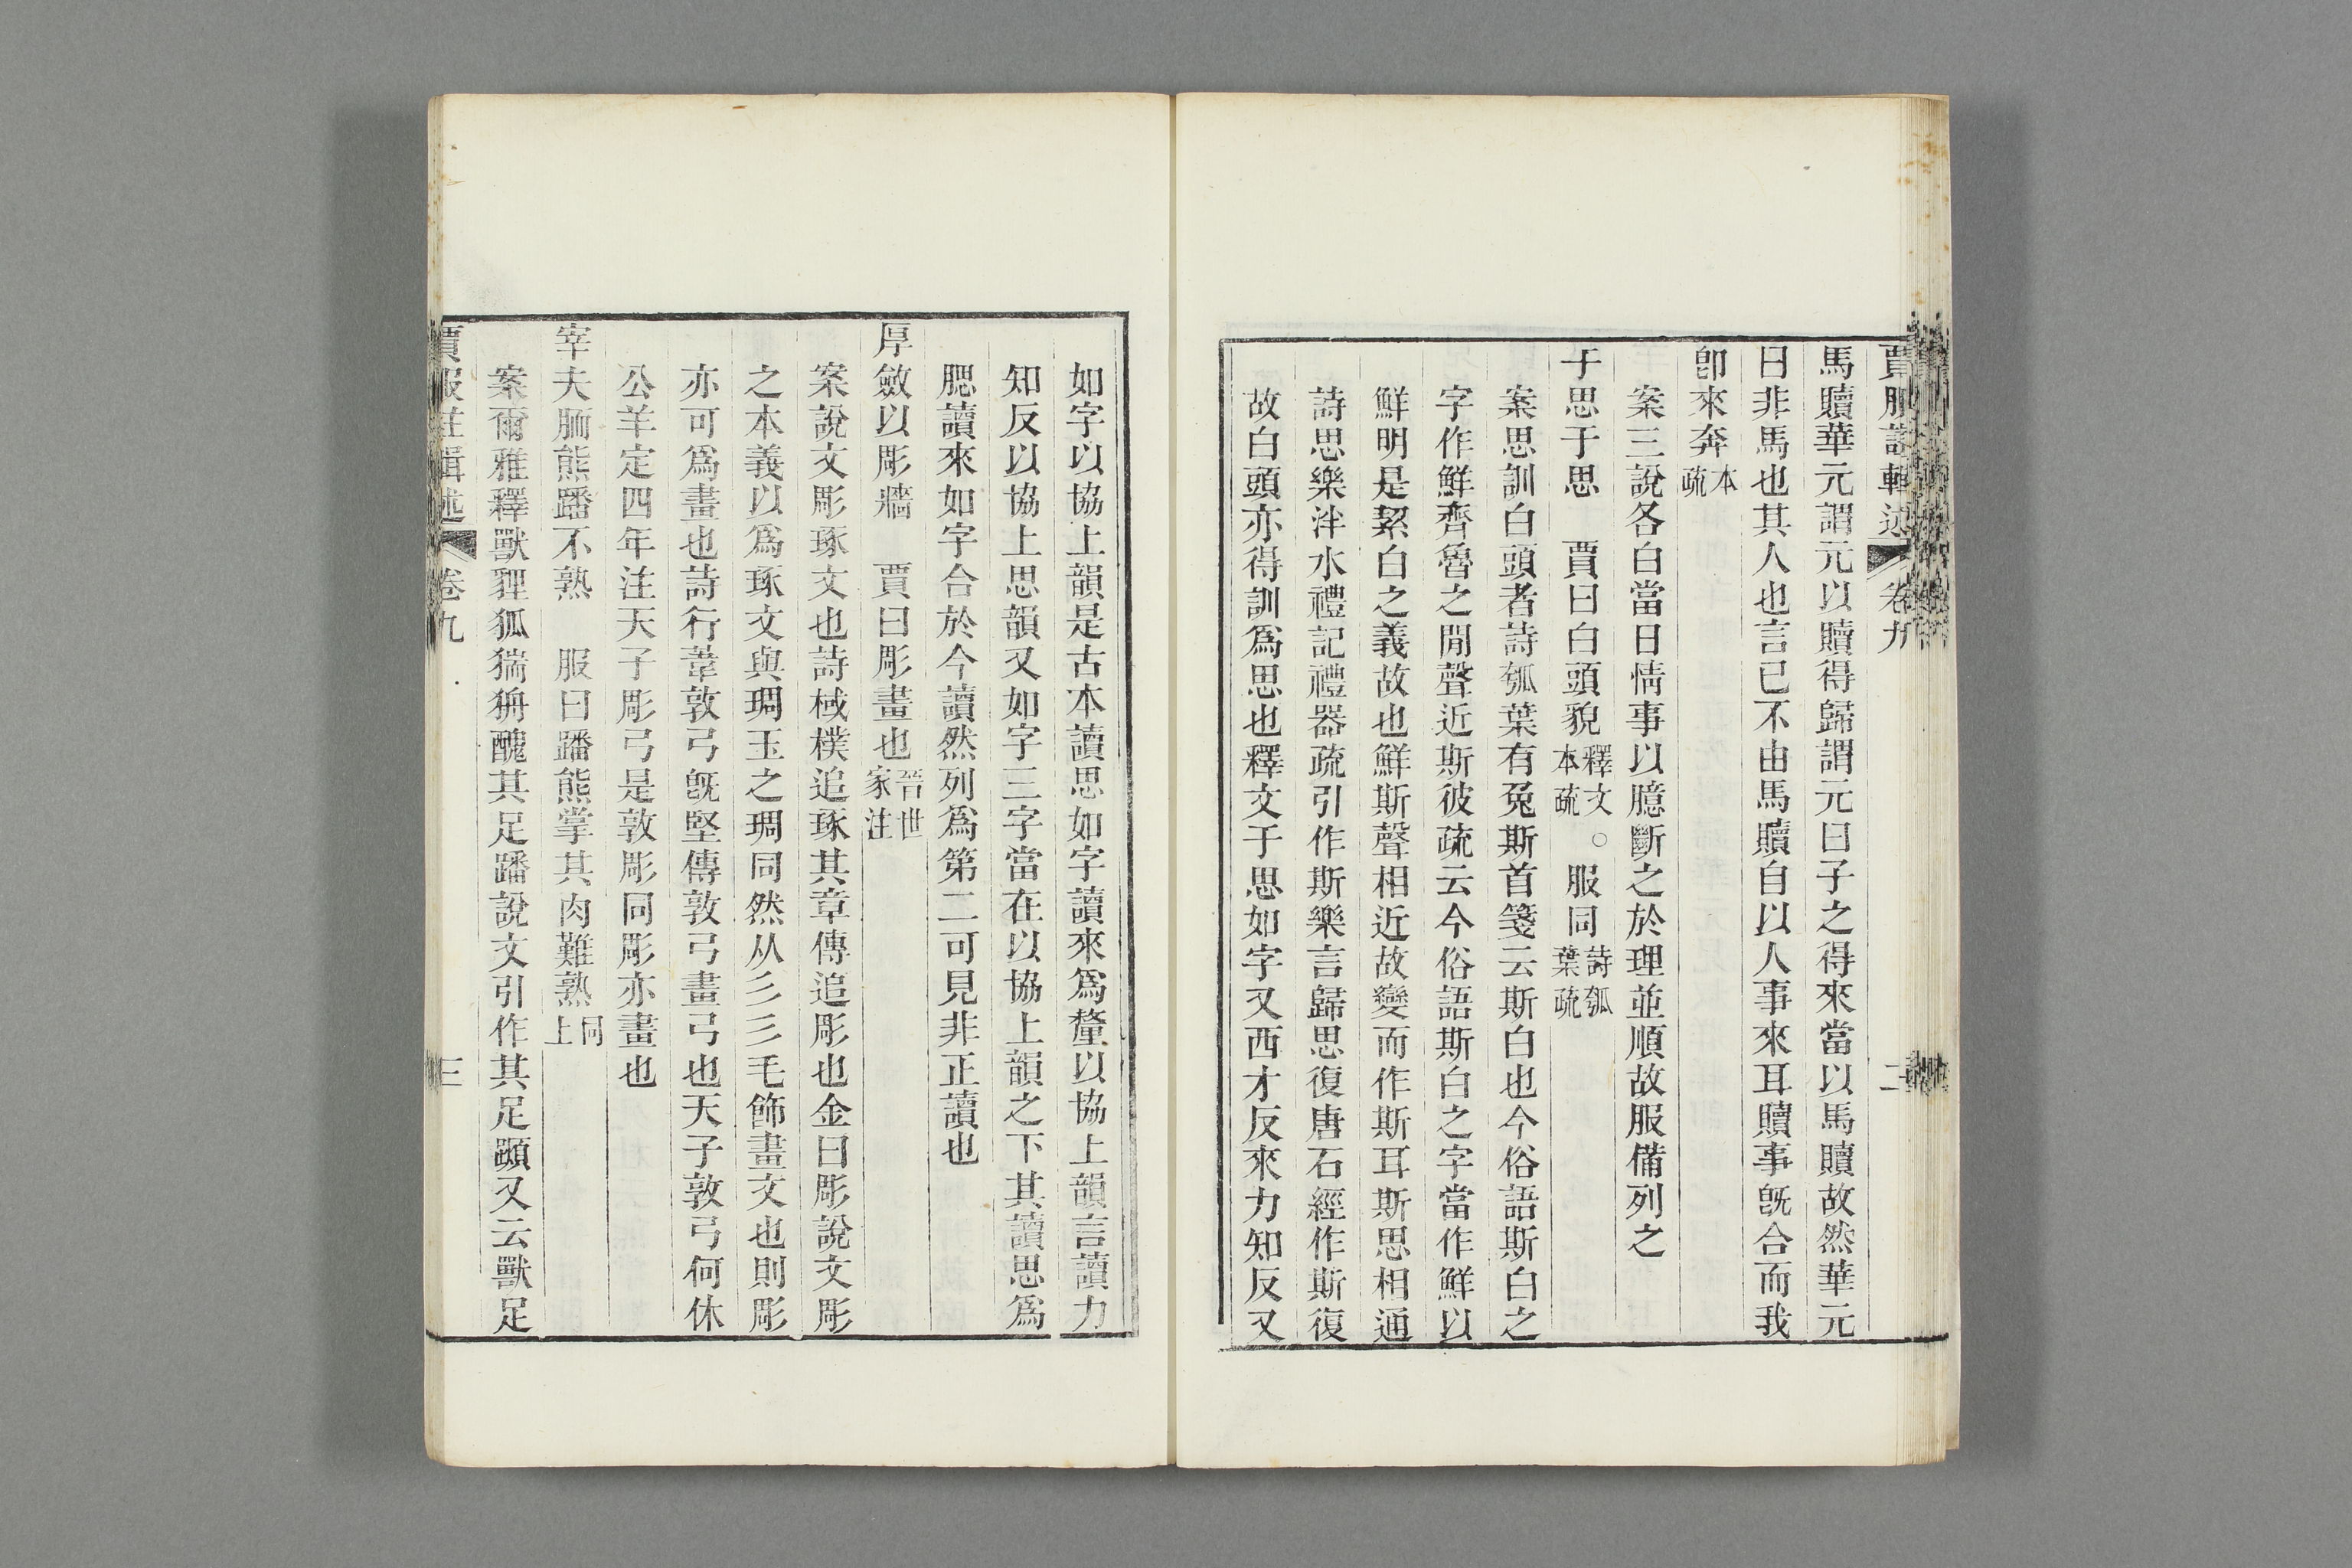 賈服註輯述 卷九 二
馬贖華元謂元以贖得歸謂元曰子之得來當以馬贖故然華元
曰非馬也其人也言已不由馬贖自以人事來耳贖事旣合而我
卽來奔本疏
案三說各白當日情事以臆斷之於理並順故服備列之
于思于思 賈曰白頭貌釋文本疏○服同詩瓠葉疏
案思訓白頭者詩瓠葉有兔斯首箋云斯白也今俗語斯白之
字作鮮齊魯之閒聲近斯彼疏云今俗語斯白之字當作鮮以
鮮明是絜白之義故也鮮斯聲相近故變而作斯耳斯思相通
詩思樂泮水禮記禮器疏引作斯樂言歸思復唐石經作斯復
故白頭亦得訓爲思也釋文于思如字又西才反來力知反又
如字以協上韻是古本讀思如字讀來爲釐以協上韻言讀力
知反以協上思韻又如字三字當在以協上韻之下其讀思爲
腮讀來如字合於今讀然列爲第二可見非正讀也
厚斂以彫牆 賈曰彫畫也晉世家注
案說文彫琢文也詩棫樸追琢其章傳追彫也金曰彫說文彫
之本義以爲琢文與琱玉之琱同然从彡彡毛飾畫文也則彫
亦可爲畫也詩行葦敦弓旣堅傳敦弓畫弓也天子敦弓何休
公羊定四年注天子彫弓是敦彫同彫亦畫也
宰夫胹熊蹯不熟 服曰蹯熊掌其肉難熟同上
案爾雅釋獸貍狐貒貈醜其足蹯說文引作其足䠣又云獸足
賈服註輯述 卷九 三